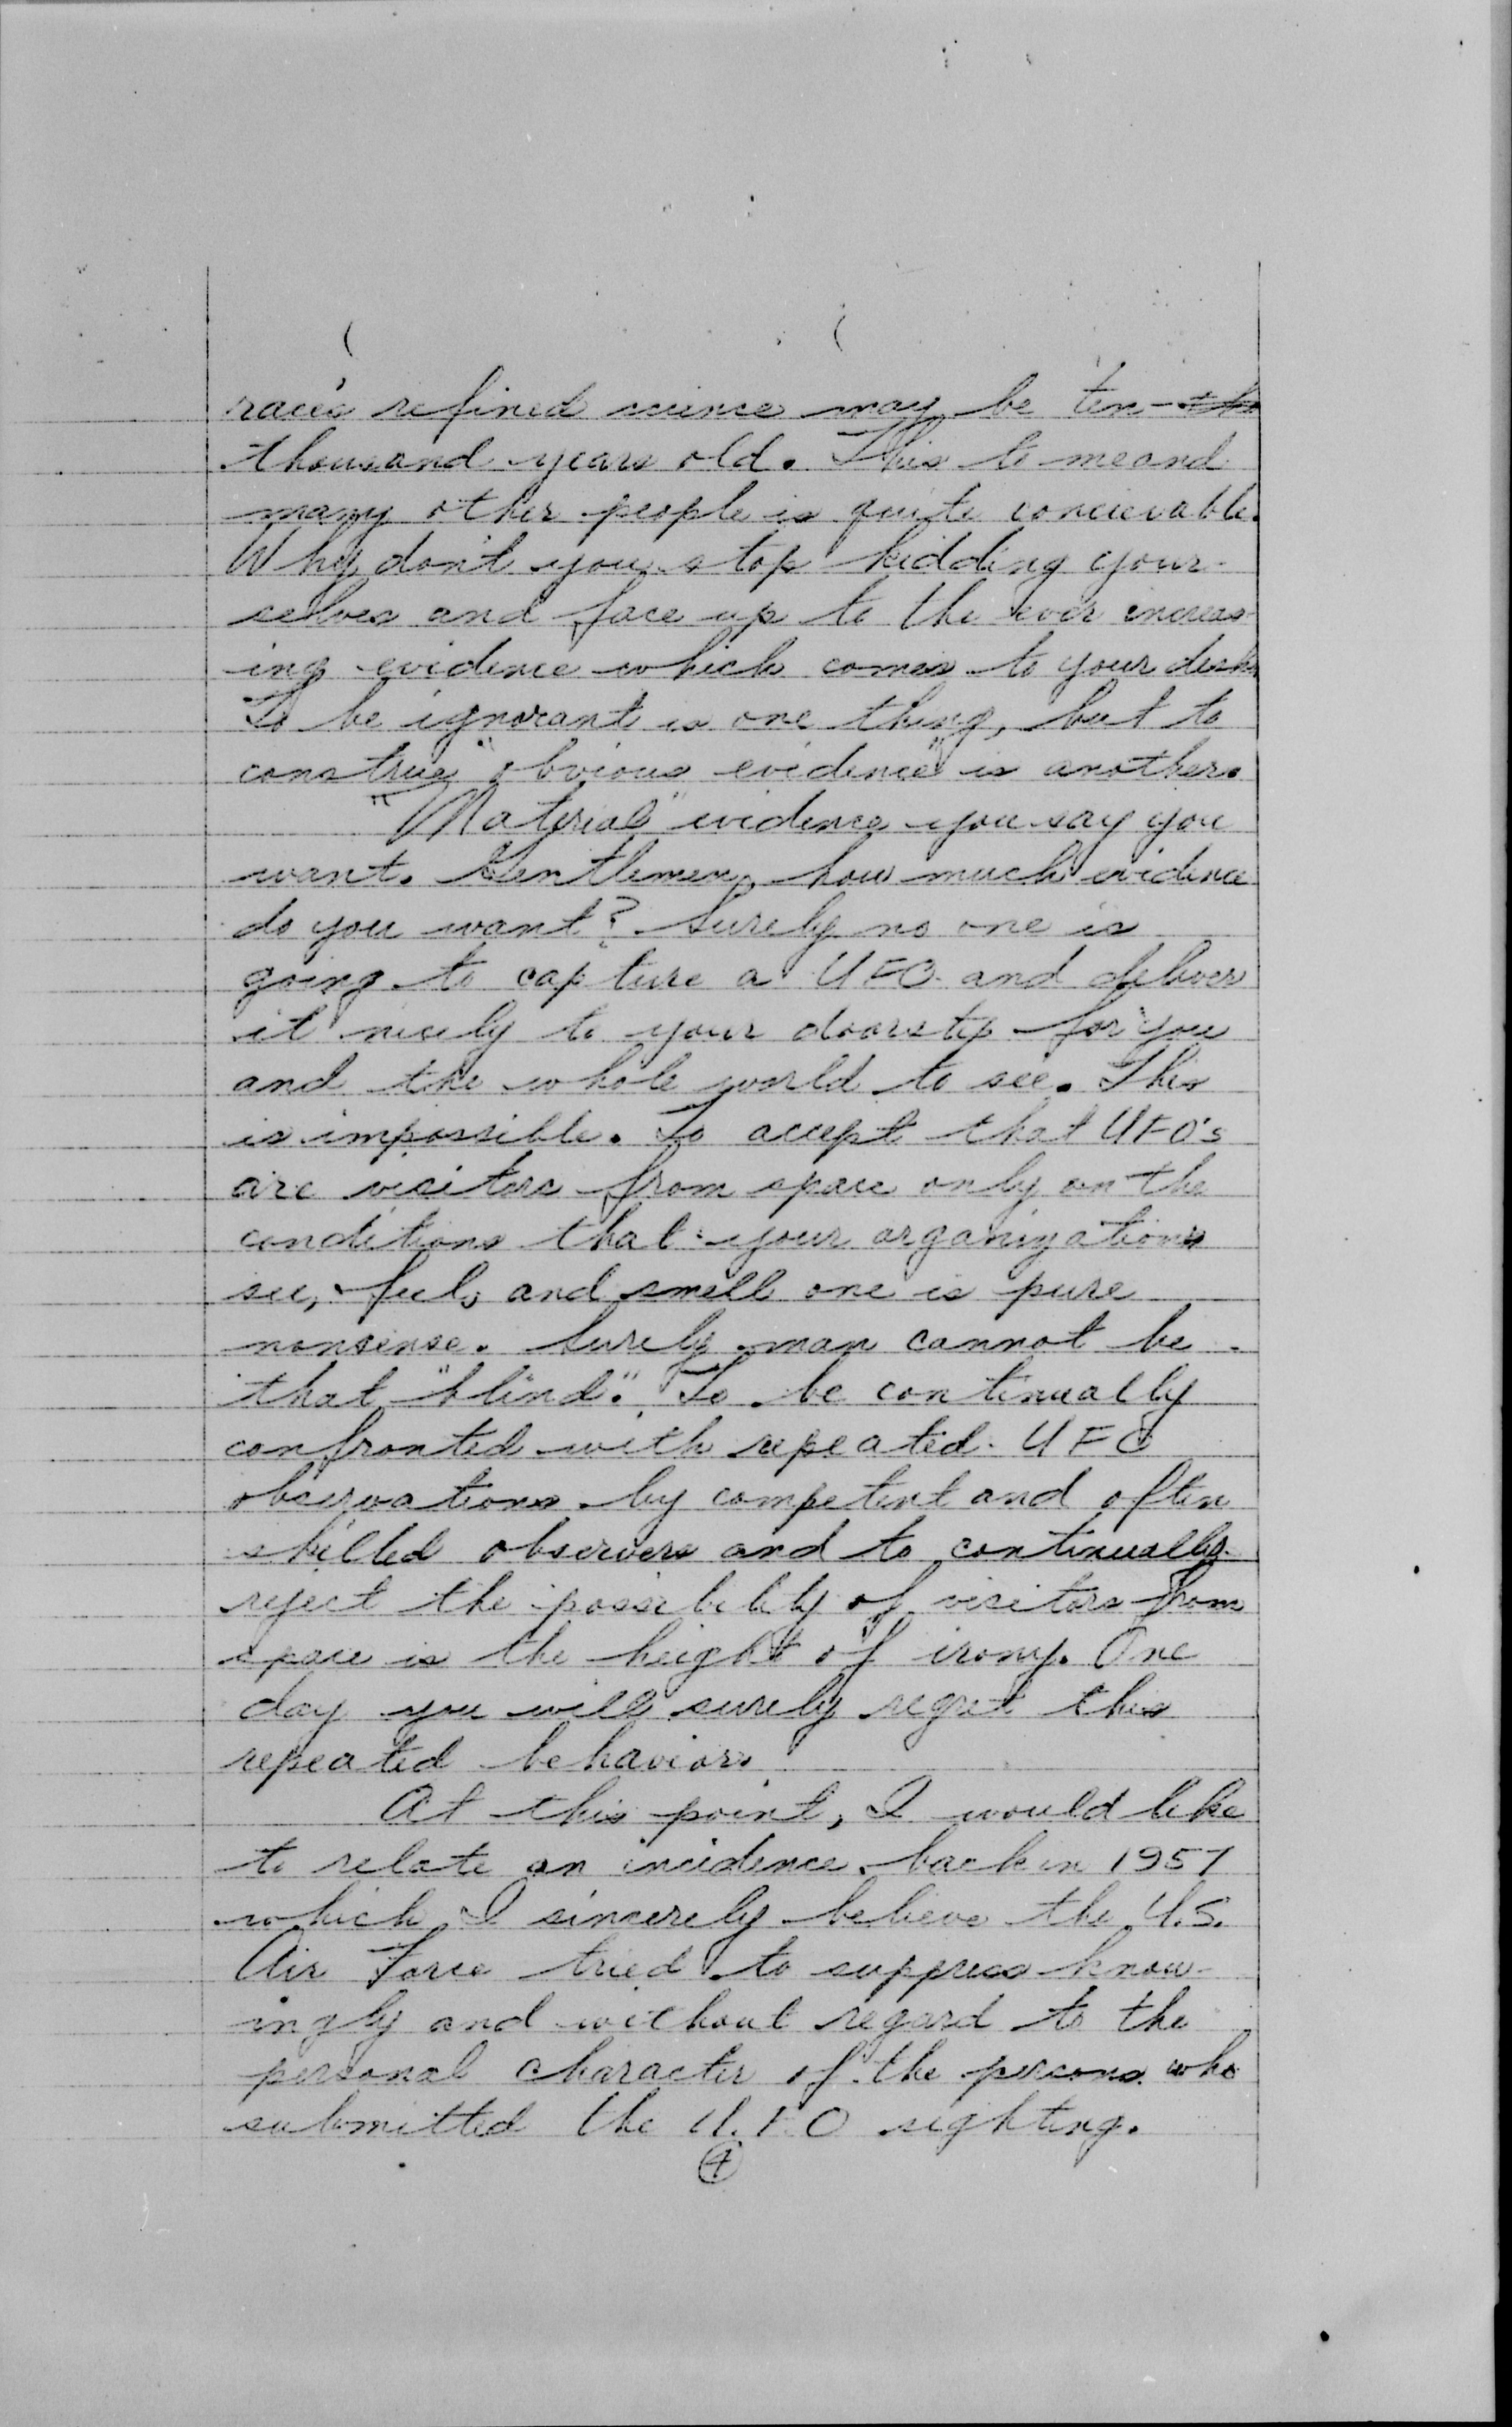 race's refined science may be ten-
thousand years old. This to me and
many other people is quite concievable.
Why don't you stop kidding your-
selves and face up to the ever increas-
ing evidence which comes to your desk.
To be ignorant is one thing, but to
construe "obvious evidence" is another.
"Material" evidence you say you
want. Gentlemen, how much evidence
do you want? Surely no one is
going to capture a UFO and deliver
it nicely to your doorstep for you
and the whole world to see. This
is impossible. To accept that UFO's
are visitors from space only on the
conditions that your organizations
see, feel, and smell one is pure
nonsense. Surely man cannot be
that "blind". To be continually
confronted with repeated UFO
observations by competent and often
skilled observers and to continually
reject the possibility of visitors from
space is the height of irony. One
day you will surely regret this
repeated behavior.
At this point, I would like
to relate an incidence back in 1957
which I sincerely believe the U.S.
Air Force tried to suppress know-
ingly and without regard to the
personal character of the persons who
submitted the U.F.O sighting.
4